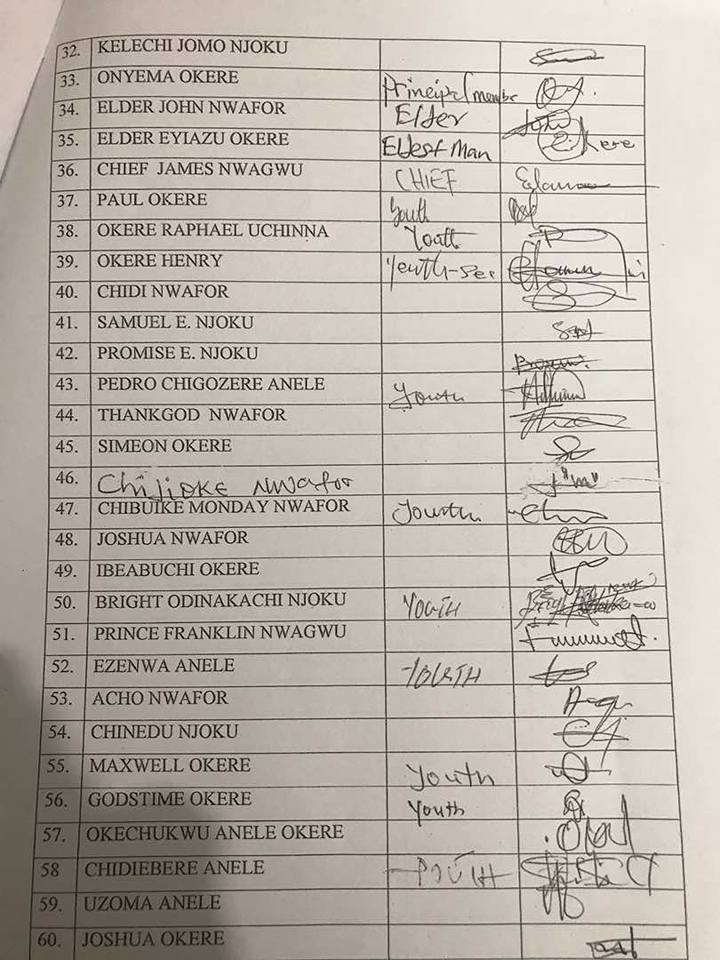 32. KELECHI JOMO NJOKU
33. ONYEMA OKERE Principal member
34. ELDER JOHN NWAFOR Elder
35. ELDER EYIAZU OKERE Eldest Man E. Okere
36. CHIEF JAMES NWAGWU CHIEF
37. PAUL OKERE Youth
38. OKERE RAPHAEL UCHINNA Youth
39. OKERE HENRY Youth-Sec
40. CHIDI NWAFOR
41. SAMUEL E. NJOKU
42. PROMISE E. NJOKU
43. PEDRO CHIGOZERE ANELE Youth
44. THANKGOD NWAFOR
45. SIMEON OKERE
46. CHIJIOKE NWAFOR
47. CHIBUIKE MONDAY NWAFOR Youth
48. JOSHUA NWAFOR
49. IBEABUCHI OKERE
50. BRIGHT ODINAKACHI NJOKU YOUTH
51. PRINCE FRANKLIN NWAGWU
52. EZENWA ANELE YOUTH
53. ACHO NWAFOR
54. CHINEDU NJOKU
55. MAXWELL OKERE Youth
56. GODSTIME OKERE Youth
57. OKECHUKWU ANELE OKERE
58 CHIDIEBERE ANELE YOUTH
59. UZOMA ANELE
60. JOSHUA OKERE